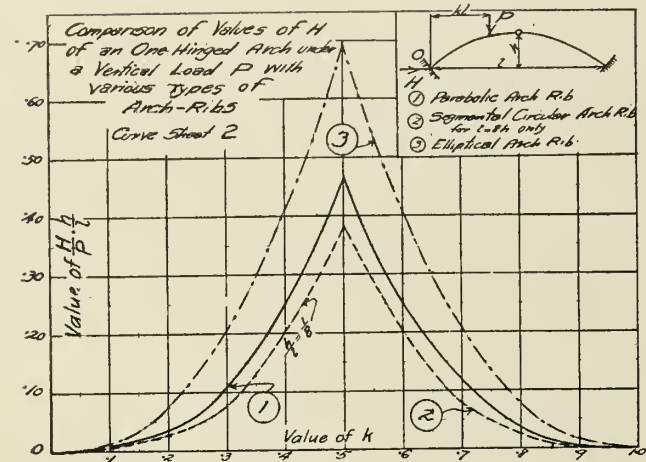 Comparison of Values of H
of an One-Hinged Arch under
a Vertical Load P with
various Types of
Arch-Ribs
Curve Sheet 2
kl
P
O
H
h
l
① Parabolic Arch Rib
② Segmental Circular Arch Rib
for l=8h only
③ Elliptical Arch Rib.
Value of H/P · h/l
.70
.60
.50
.40
.30
.20
.10
0
③
h/l = 1/8
①
②
Value of k
.1 .2 .3 .4 .5 .6 .7 .8 .9 1.0